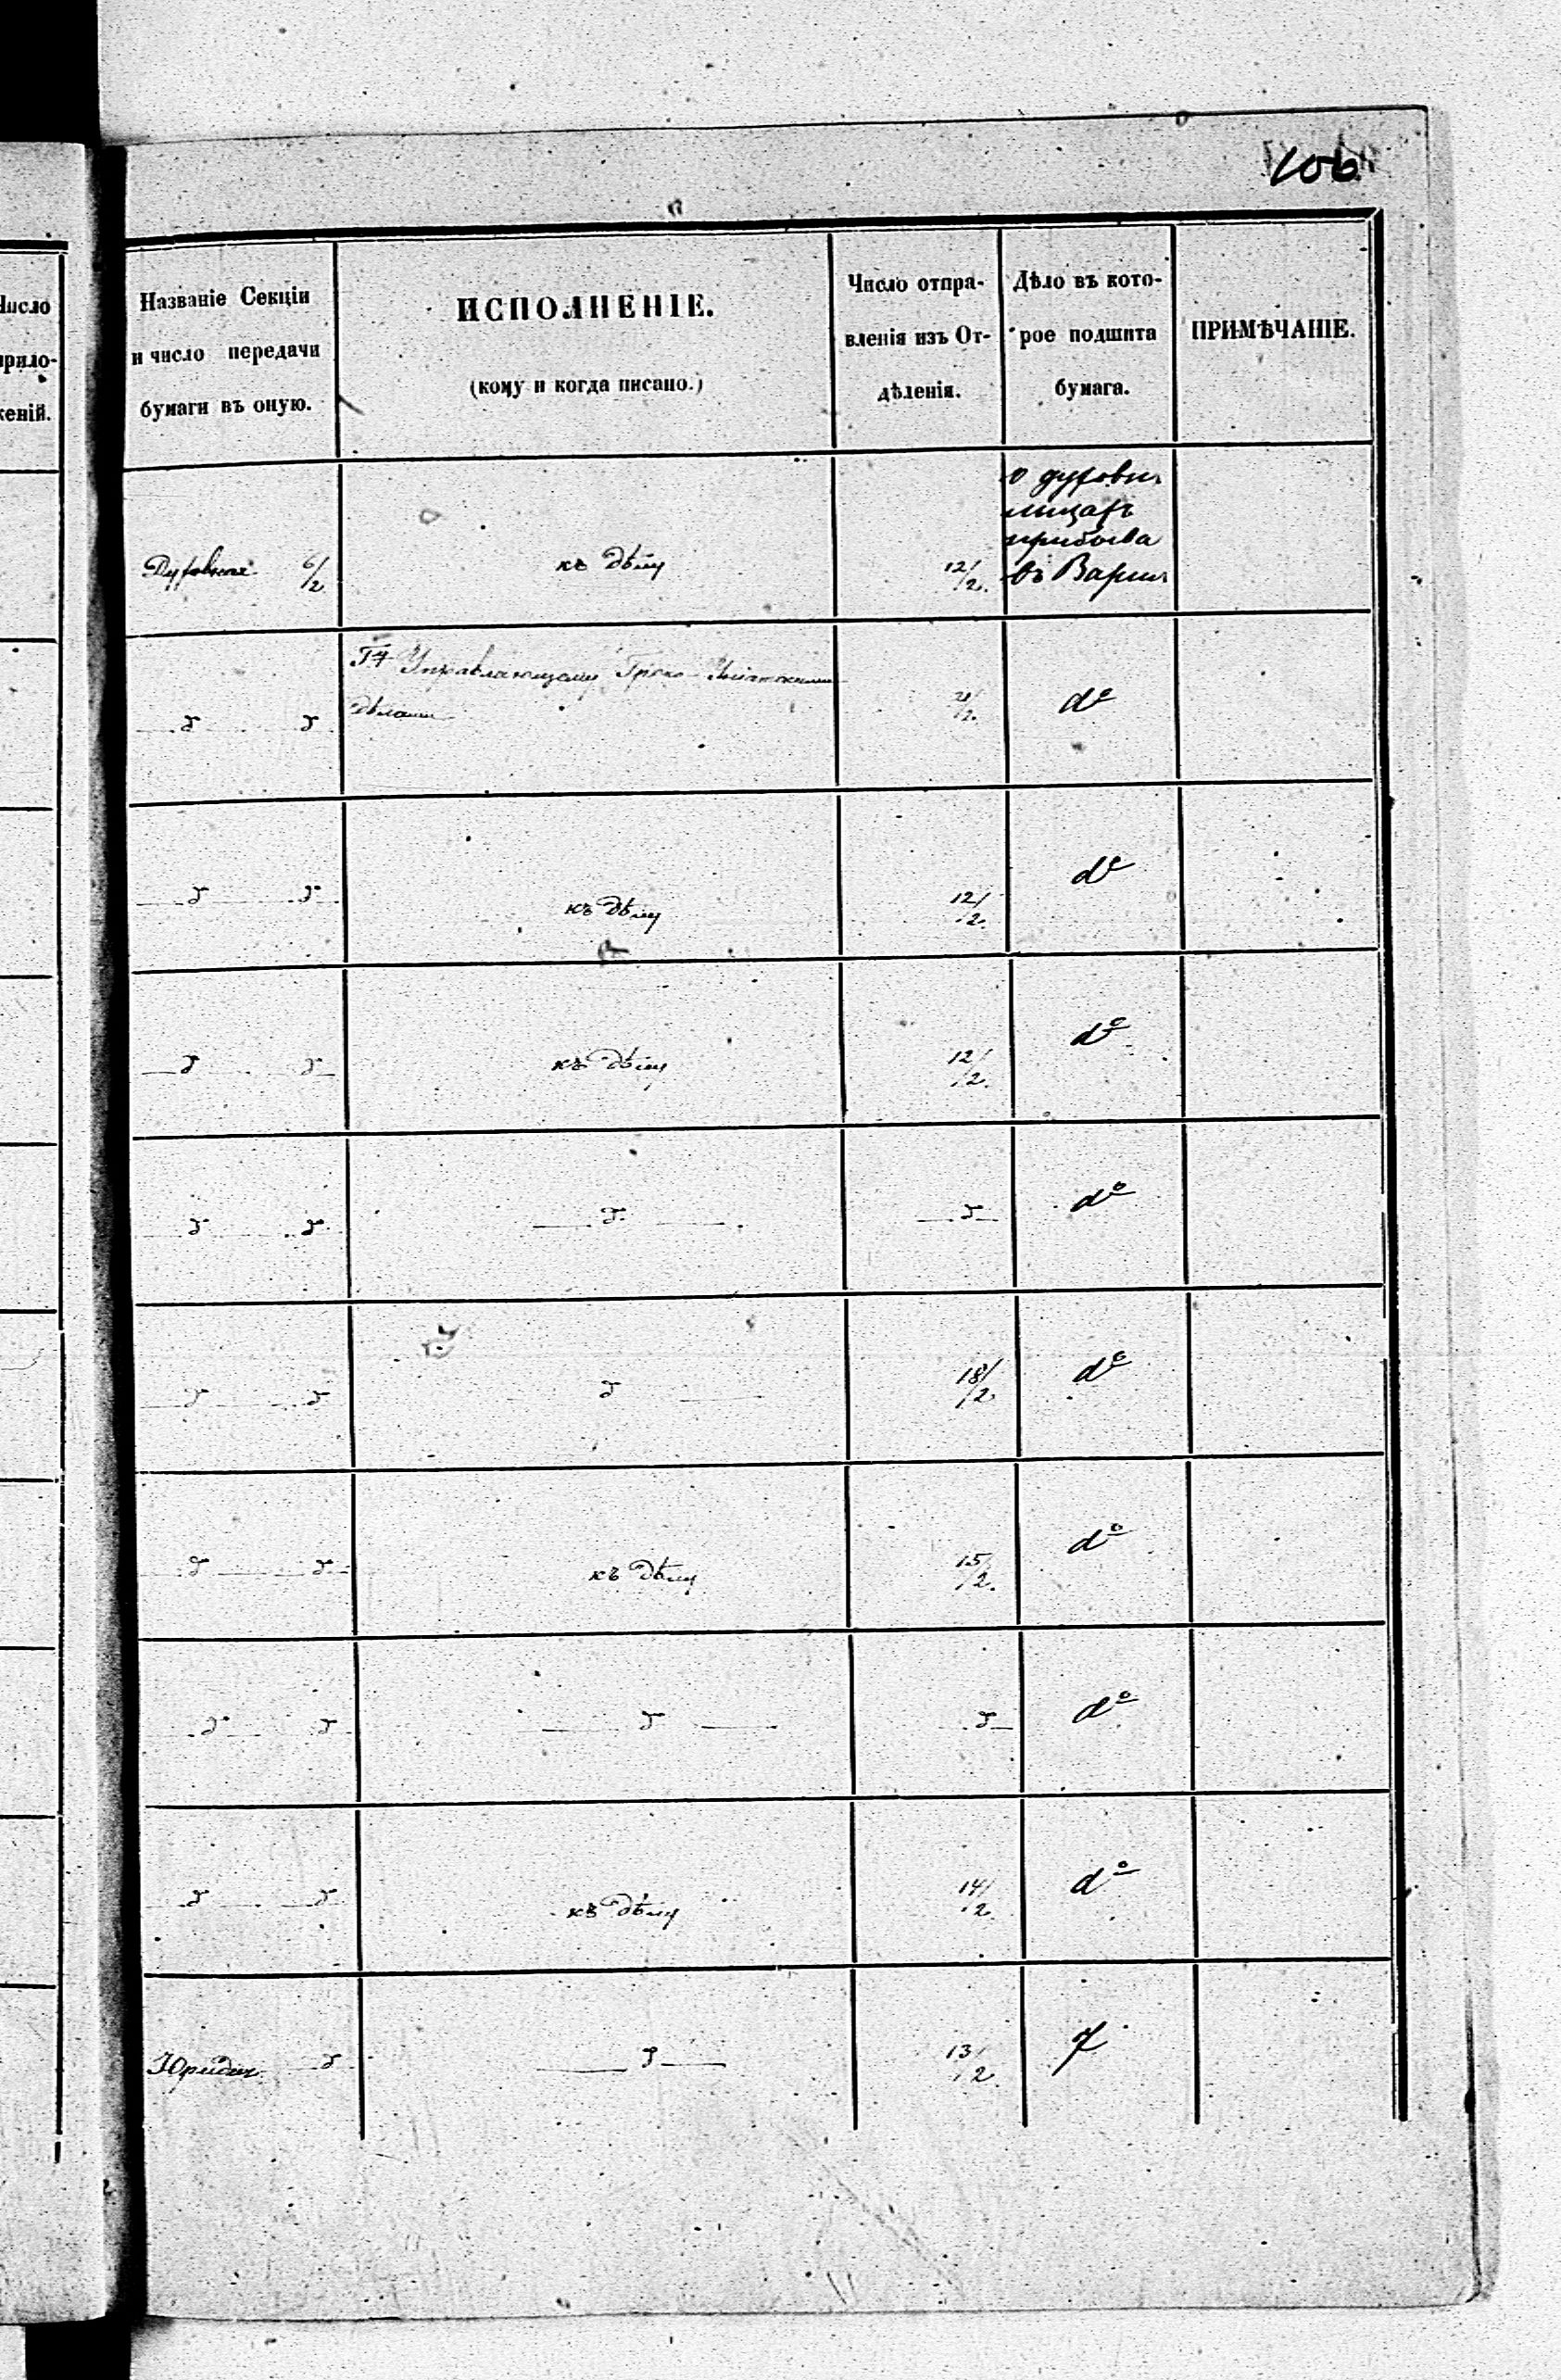 106
Число
прило-
жений.
Названіе Секціи
и число передачи
бумаги въ оную.
ИСПОЛНЕНІЕ.
(кому и когда писано.)
Число отпра-
вленія изъ От-
дѣленія.
Дѣло въ кото-
рое подшита
бумага.
ПРИМѢЧАНІЕ.
Духовная 6/2
къ Дѣлу
12/2.
о духовн
лицахъ
прибыва
въ Варш
Управляющему Греко-Уніатскими
Дѣлами
21/2.
dº
къ Дѣлу
12/2.
dº
къ Дѣлу
12/2.
dº
dº
18/2.
dº
къ Дѣлу
15/2.
dº
dº
къ Дѣлу
14/2
dº
Юридич.
13/2
7